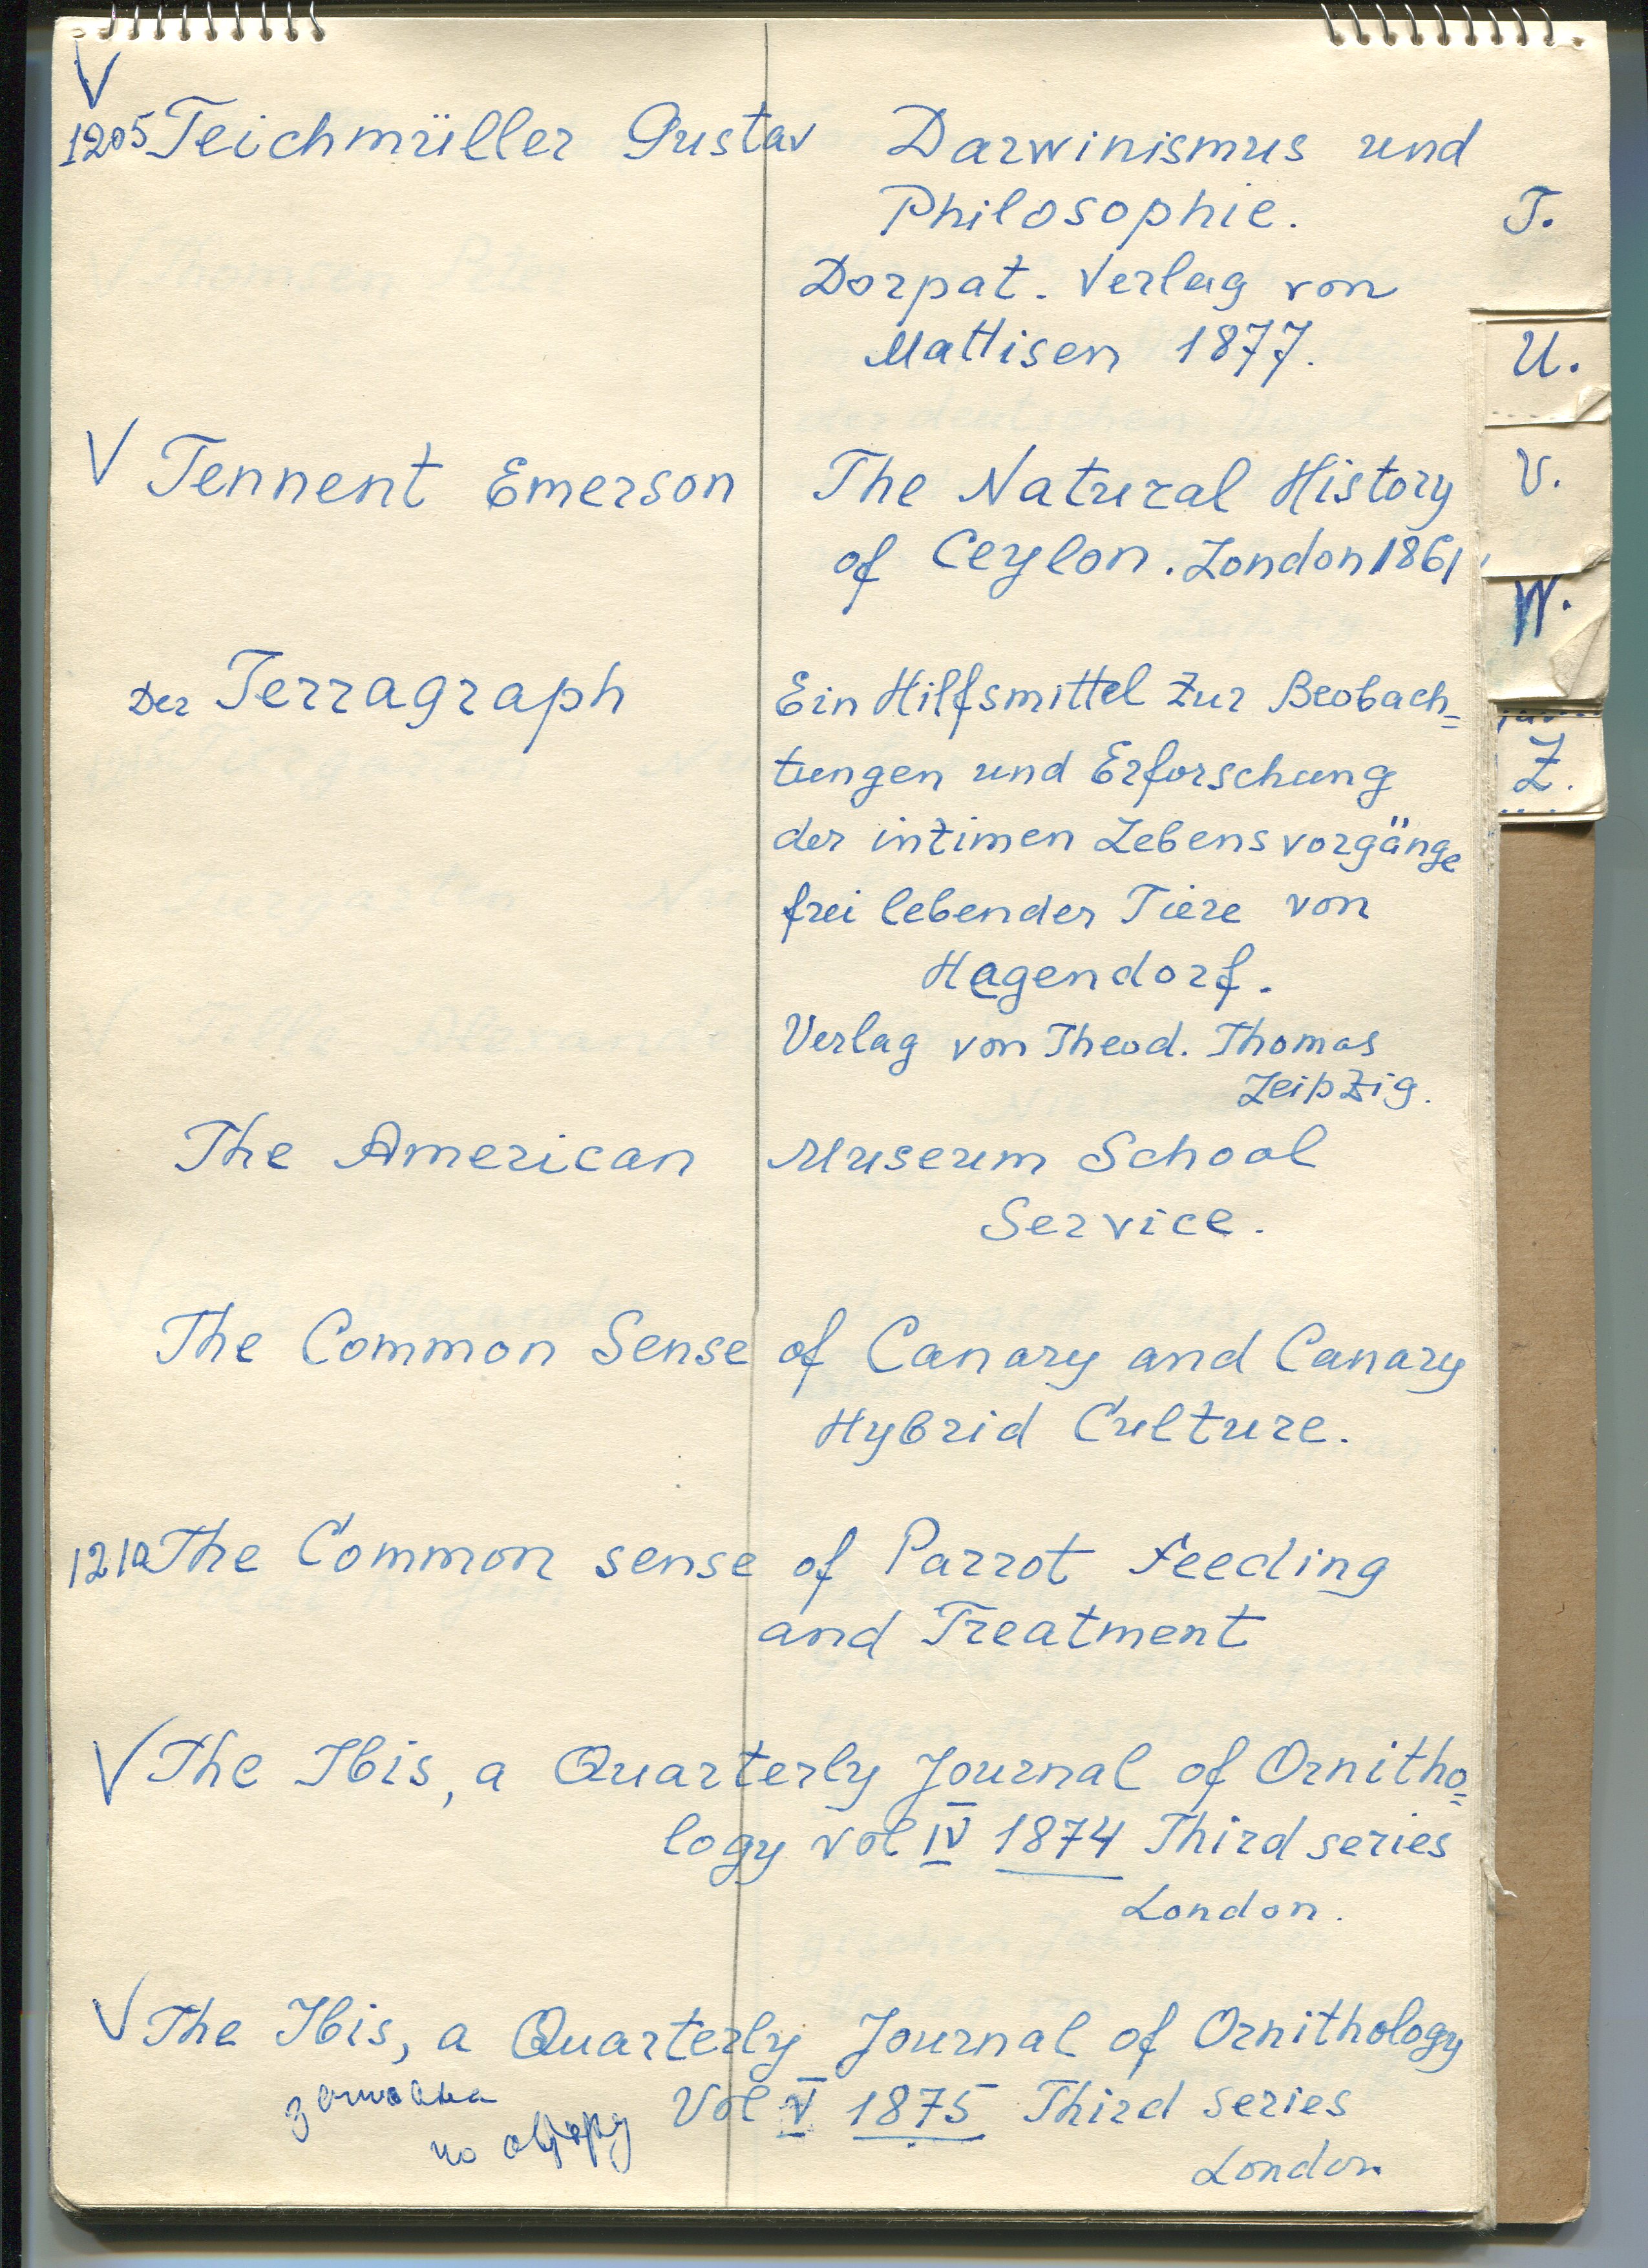 V
1205 Teichmüller Gustav Darwinismus und
Philosophie.
Dorpat. Verlag von
Mattisen 1877.
V Tennent Emerson The Natural History
of Ceylon. London 1861
Der Terragraph Ein Hilfsmittel zur Beobach=
tungen und Erforschung
der intimen Lebensvorgänge
frei lebender Tiere von
Hegendorf.
Verlag von Theod. Thomas
Leipzig.
The American Museum School
Service.
The Common Sense of Canary and Canary
Hybrid Culture.
1210 The Common sense of Parrot feeding
and Treatment
V The Ibis, a Quarterly Journal of Ornitho=
logy vol IV 1874 Third series
London.
V The Ibis, a Quarterly Journal of Ornithology
Vol V 1875 Third series
London
по
T.
U.
V.
W.
Z.